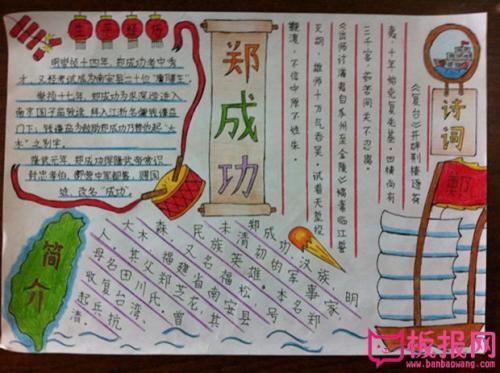 生平经历
明崇祯十四年,郑成功考中秀
才,又经考试成为南安县二十位“廪膳生”
崇祯十七年,郑成功为求深造进入
南京国子监就读,拜入江浙名儒钱谦益
门下;钱谦益为鼓励郑成功乃替他起“大
木”之别字。
隆武元年,郑成功得隆武帝赏识
封忠孝伯、御营中军都督,赐国
姓,改名“成功”。
郑成功
诗词
《复台》开辟荆榛逐荷
夷,十年始克复先基。田横尚有
三千客,茹苦间关不忍离。
《出师讨满夷自瓜州至金陵》缟素临江誓
灭胡,雄师十万气吞吴。试看天堑投
鞭渡,不信中原不姓朱。
鄭
简介
郑成功,汉族,明
末清初的军事家,
民族英雄。本名郑
森,又名福松,号
大木。福建省南安县
人。其父郑芝龙,其
母名田川氏。曾
收复台湾、
起兵抗
清。
板报网
www.banbaowang.com